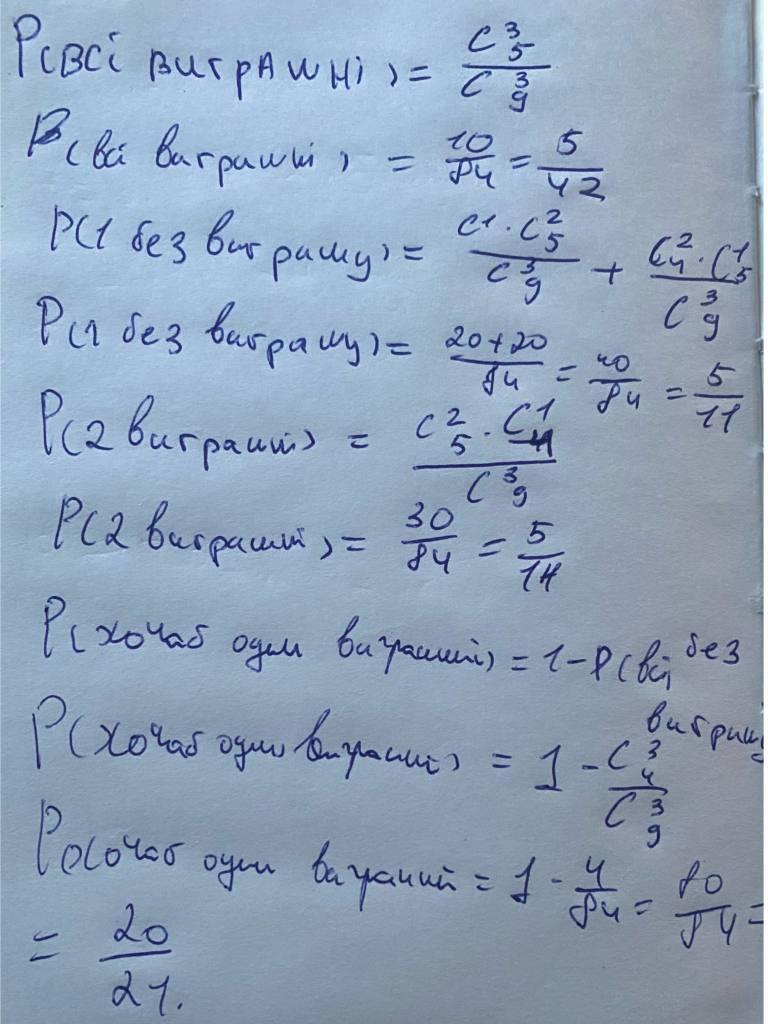 P(всі виграшні) = C³₅ / C³₉
P(всі виграшні) = 10/84 = 5/42
P(1 без виграшу) = C¹·C²₅ / C³₉ + C²₄·C¹₅ / C³₉
P(1 без виграшу) = 20+20 / 84 = 40/84 = 5/11
P(2 виграшні) = C²₅·C¹₄ / C³₉
P(2 виграшні) = 30/84 = 5/14
P(хочаб один виграшний) = 1-P(всі без виграшу
P(хочаб один виграшні) = 1 - C³₄ / C³₉
P(хочаб один виграший = 1 - 4/84 = 80/84 =
= 20/21.